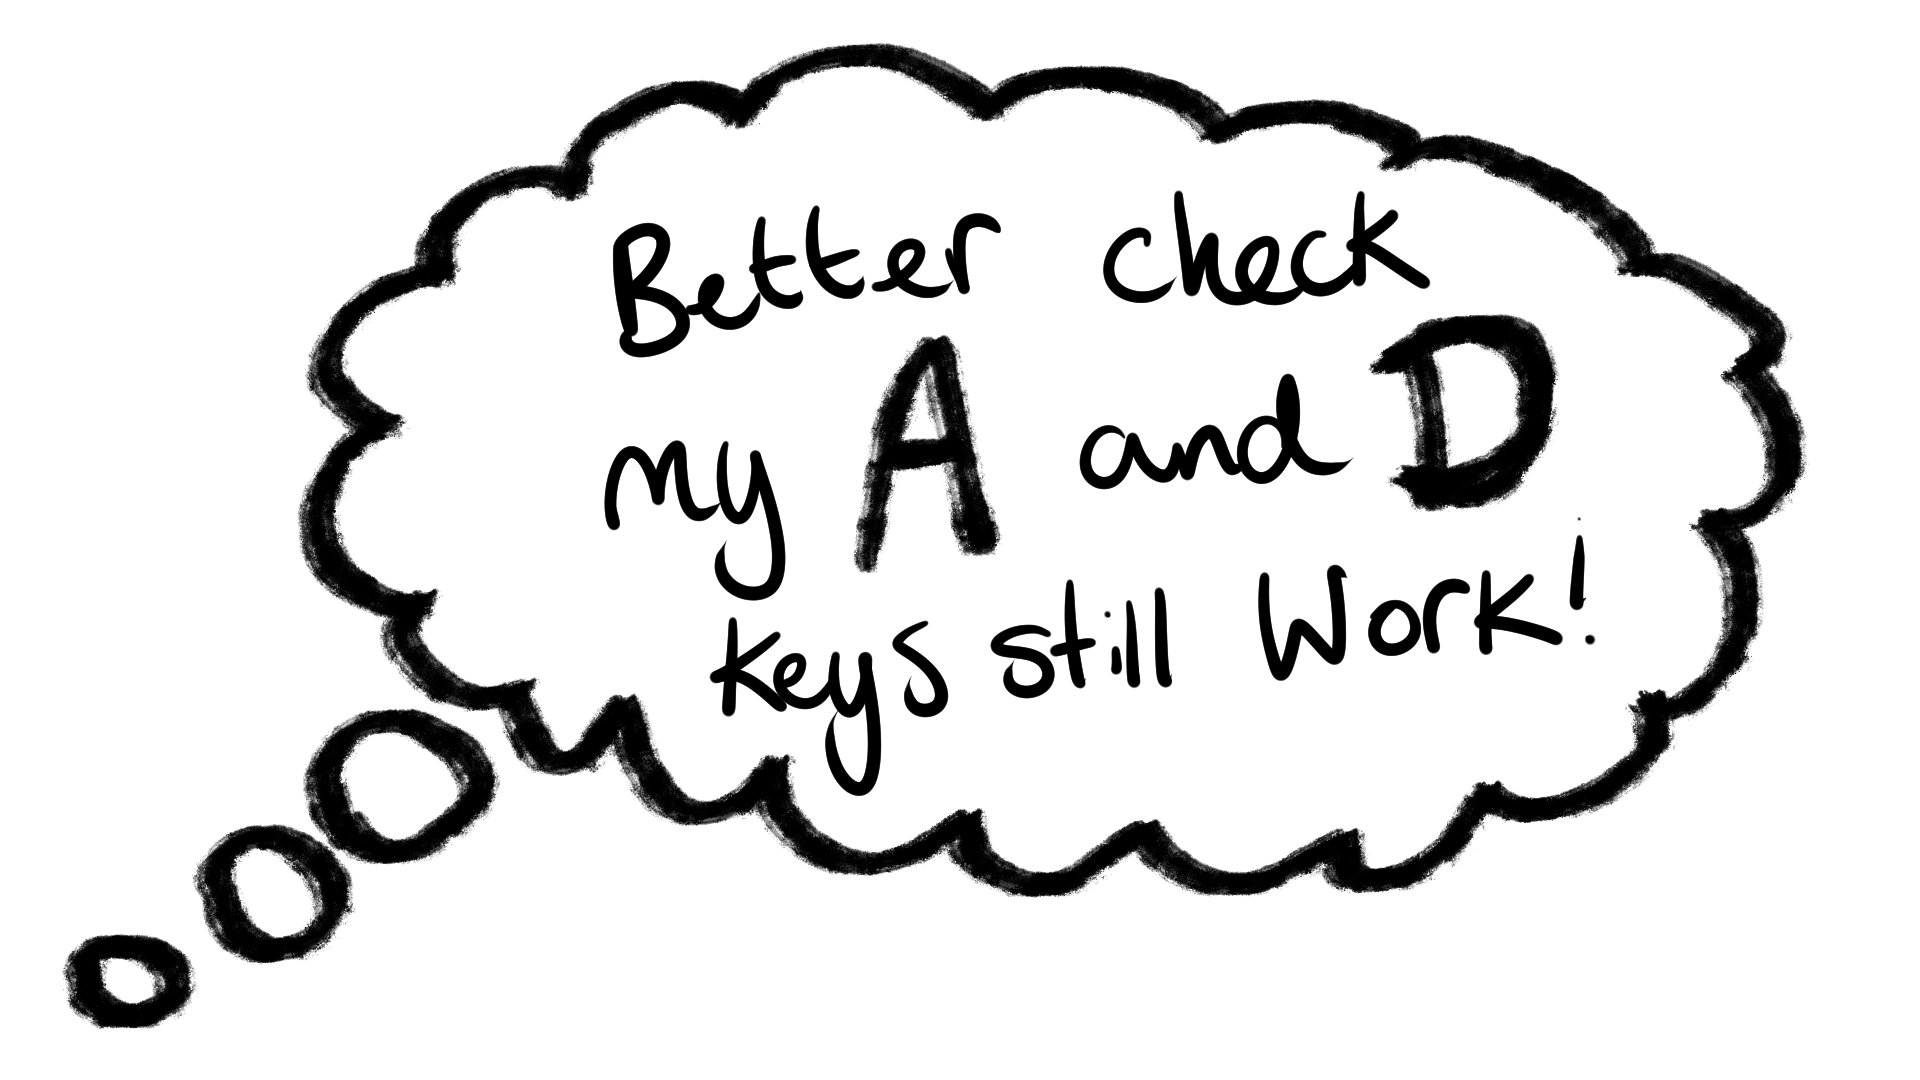 Better check
my A and D
keys still Work!